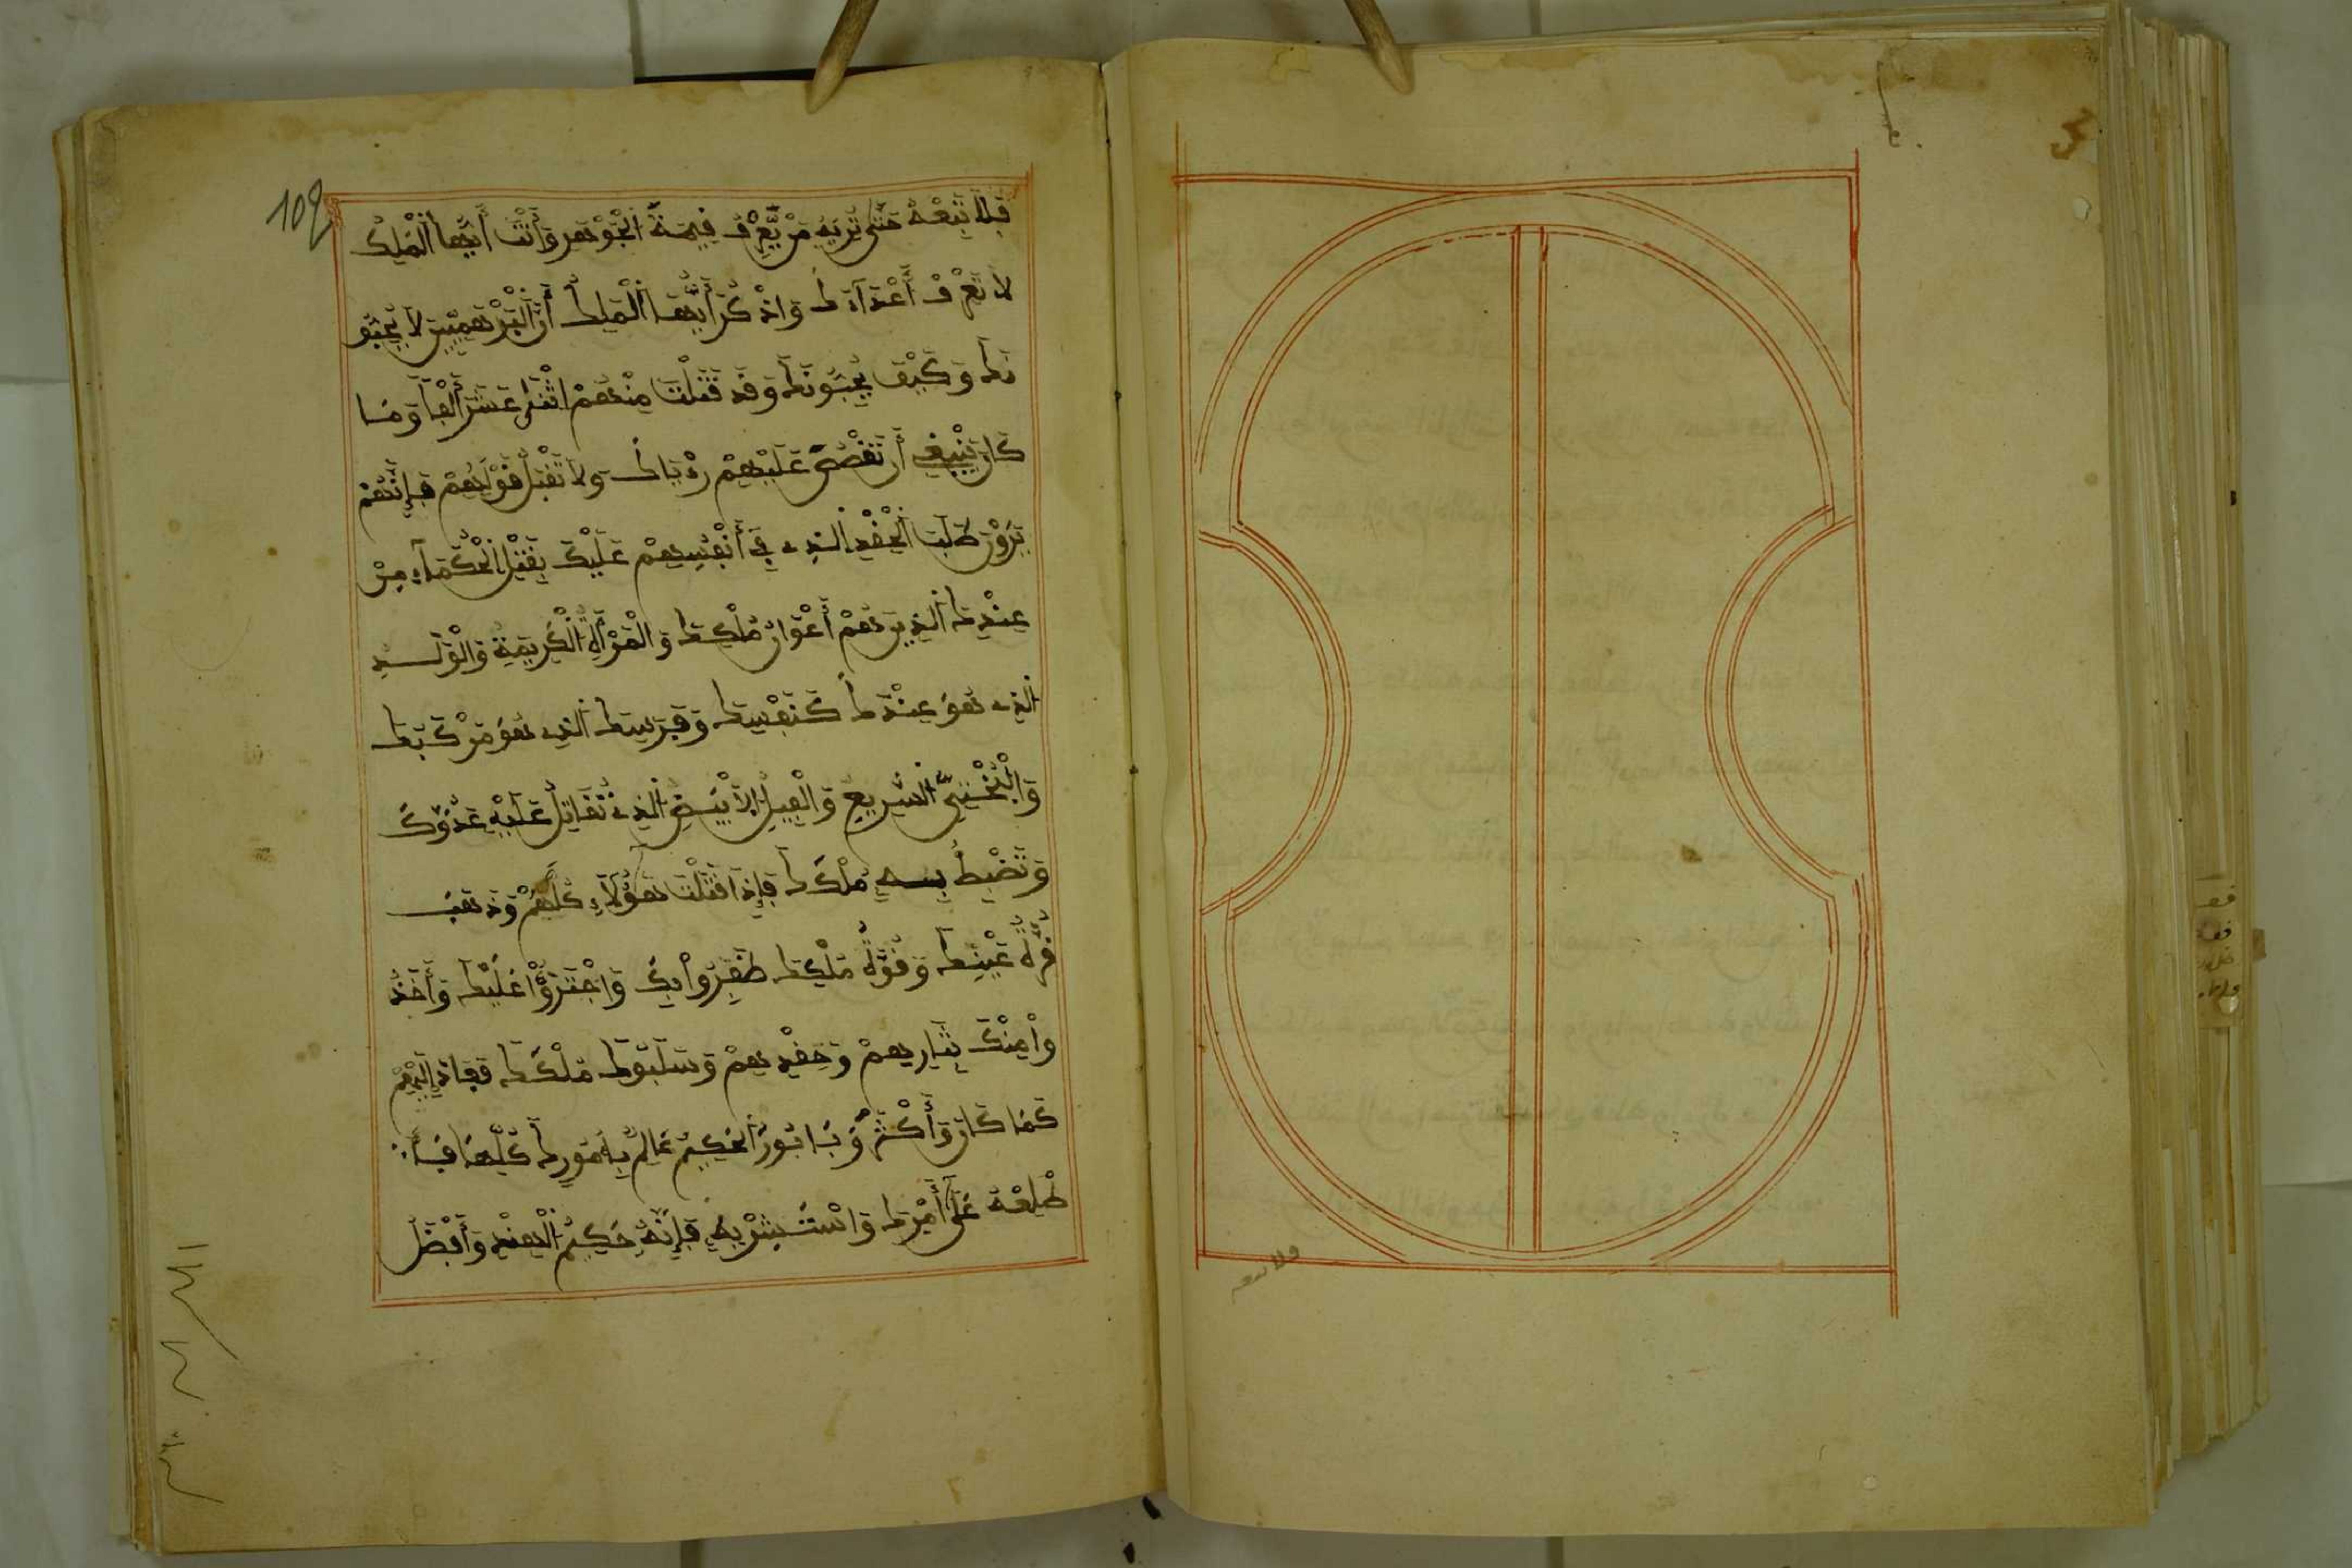 فلا تبعه حتى تريه من يعرف قيمة الجوهر وأنت أيها الملك
لا تعرف أعداءك واذكر أيها الملك أن البرهميين لا يحبو
نك وكيف يحبونك وقد قتلت منهم اثنى عشر ألفا وما
كان ينبغي أن تقص عليهم رءياك ولا تقبل قولهم فإنهم
يرون طلب الحقد الذي في أنفسهم عليك بقتل الحكماء من
عندك الذين هم أعوان ملكك والمرأة الكريمة والولد
الذي هو عندك كنفسك وفرسك الذي هو مركبك
والبختي السريع والفيل الأبيض الذي تقاتل عليه عدوك
وتضبط به ملكك فإذا قتلت هؤلاء كلهم وذهب
قرة عينك وقوة ملكك ظفروا بك واجترؤا عليك وأخذ
وا منك بثارهم وحقدهم وسلبوك ملكك فعاد إليهم
كما كان وأكثر وبانور الحكيم عالم بأمورك كلها فـأ
طلعه على أمرك واستشر به فإنه حكيم الهند وأفضل
109
فلا تبعه